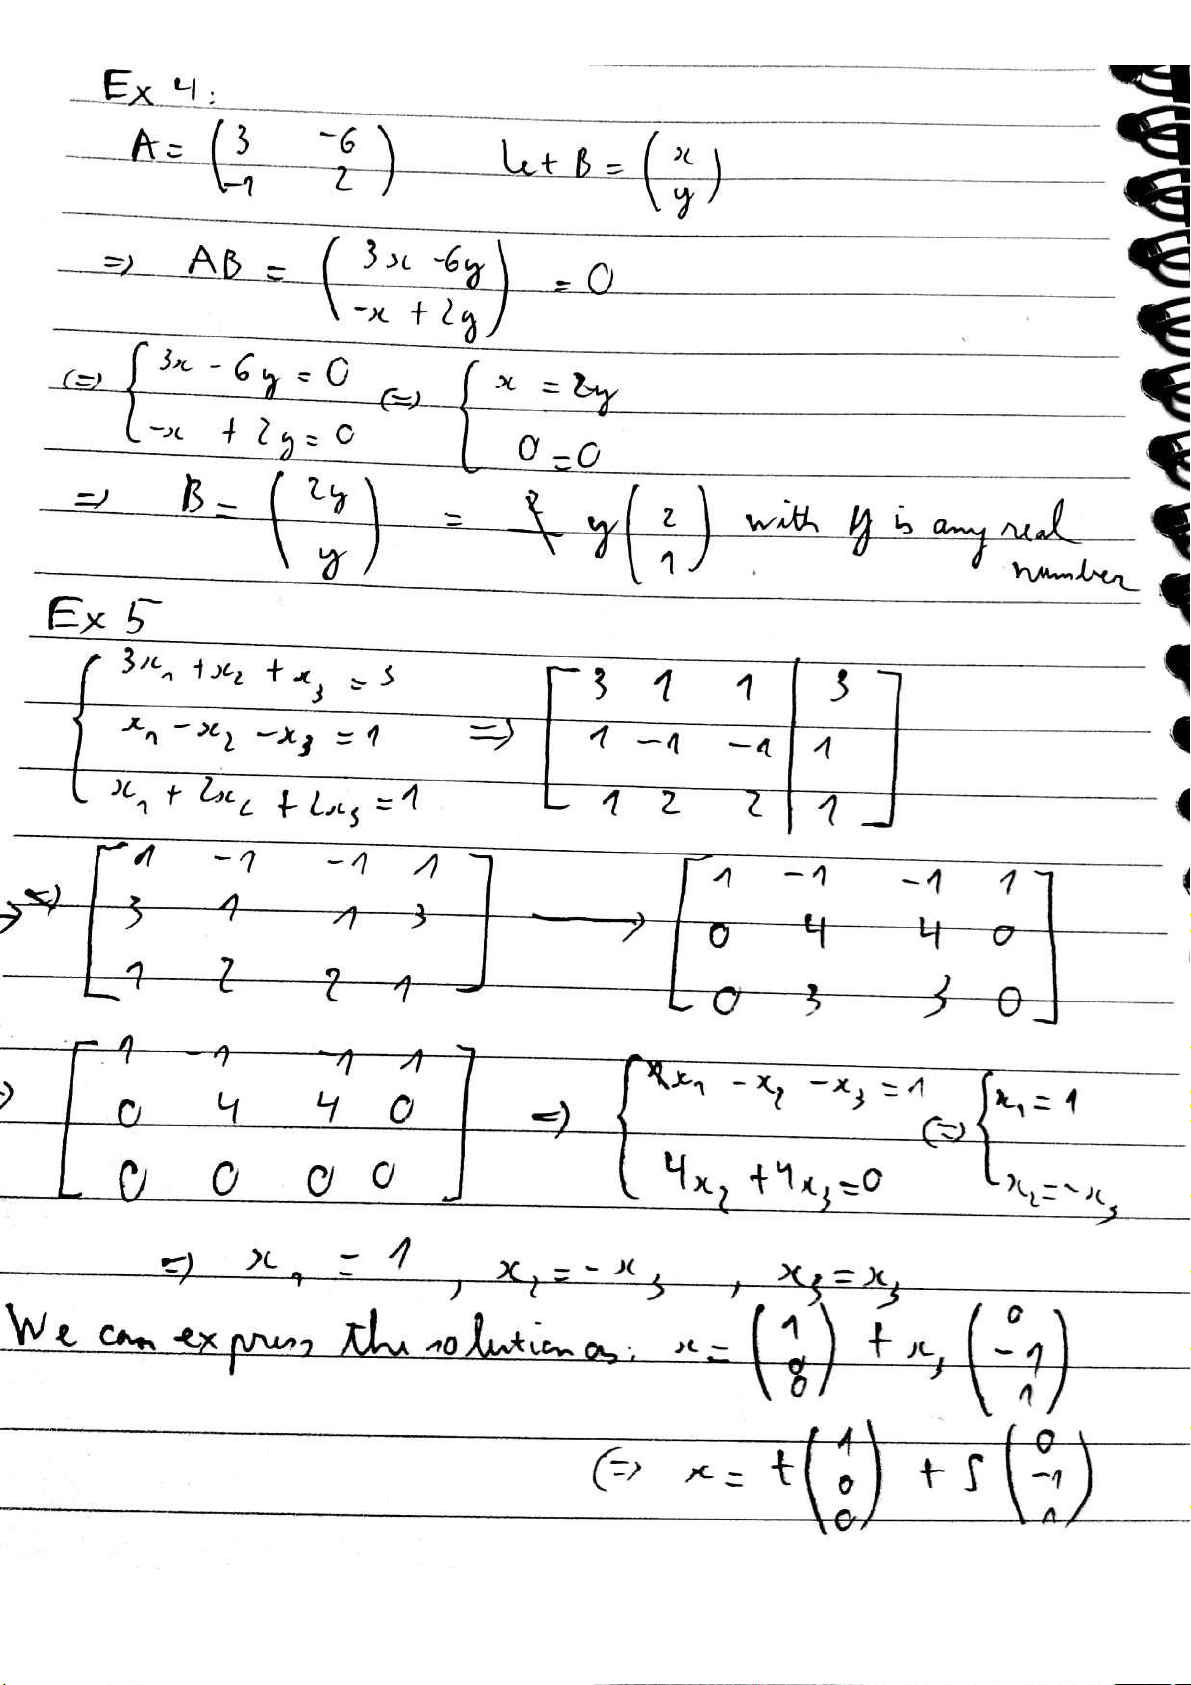 Ex 4:
A = (3 -6; -1 2) let B = (x; y)
=> AB = (3x -6y; -x + 2y) = 0
(=) { 3x - 6y = 0; -x + 2y = 0 (=) { x = 2y; 0 = 0
=> B = (2y; y) = y (2; 1) with y is any real number
Ex 5
{ 3x₁ + x₂ + x₃ = 3; x₁ - x₂ - x₃ = 1; x₁ + 2x₂ + 2x₃ = 1 => [3 1 1 | 3; 1 -1 -1 | 1; 1 2 2 | 1]
=> [1 -1 -1 1; 3 1 1 3; 1 2 2 1] → [1 -1 -1 1; 0 4 4 0; 0 3 3 0]
=> [1 -1 -1 1; 0 4 4 0; 0 0 0 0] => { x₁ - x₂ - x₃ = 1; 4x₂ + 4x₃ = 0 (=) { x₁ = 1; x₂ = -x₃
=> x₁ = 1, x₂ = -x₃, x₃ = x₃
We can express the solution as: x = (1; 0; 0) + x₃ (0; -1; 1)
(=> x = t (1; 0; 0) + s (0; -1; 1)